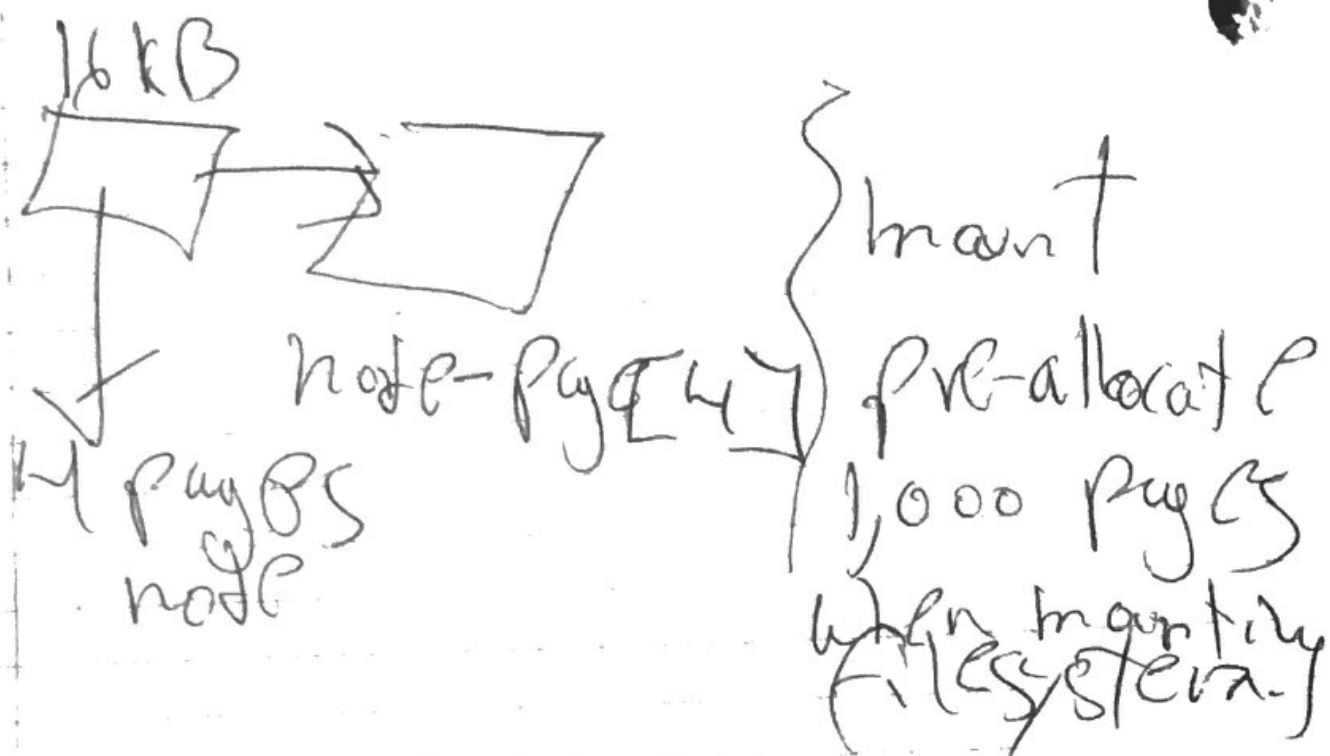 16 kB
node-page[4]
4 pages
node
mount
pre-allocate
1,000 pages
when mounting
filesystem.